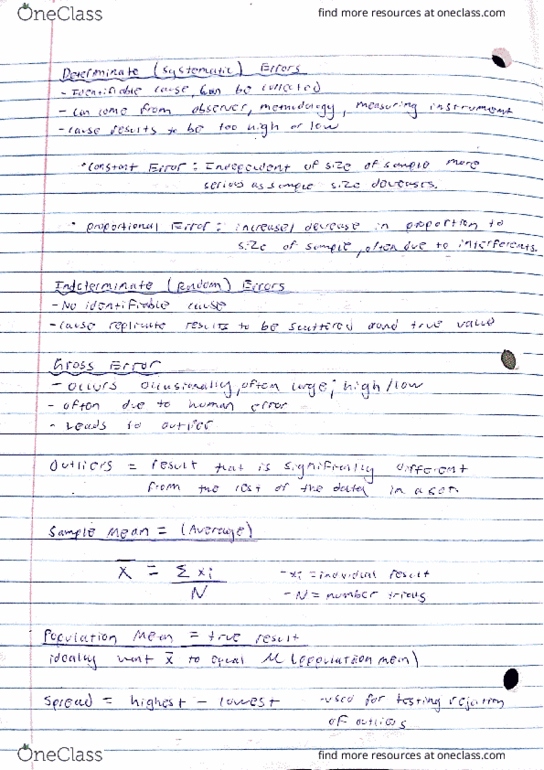 OneClass
find more resources at oneclass.com
Determinate (Systematic) Errors
- Identifiable cause can be corrected
- can come from observer, methodology, measuring instrument
- cause results to be too high or low
• Constant Error: Independent of size of sample more
serious as sample size decreases.
• proportional Error: increase/decrease in proportion to
size of sample, often due to interferents.
Indeterminate (Random) Errors
- No identifiable cause
- cause replicate results to be scattered around true value
Gross Error
- occurs occasionally, often large; high/low
- often due to human error
- Leads to outlier
Outliers = result that is significally different
from the rest of the data in a set.
Sample Mean = (Average)
x̄ = Σ xi / N
- xi = individual result
- N = number trials
Population Mean = true result
ideally want x̄ to equal M (population mean)
Spread = highest - lowest
- used for testing rejection
of outliers
OneClass
find more resources at oneclass.com